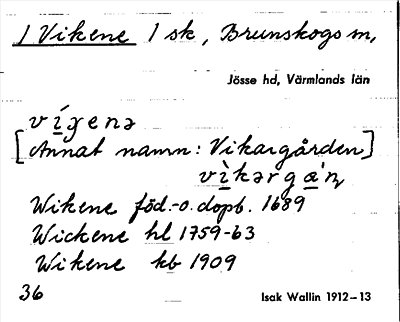 / Vikene 1 sk, Brunskogs sn,
Jösse hd, Värmlands län
víʒenə
[Annat namn: Vikargården]
vìkərgán
Wikene föd.-o.dopb. 1689
Wickene hl 1759-63
Wikene kb 1909
36 Isak Wallin 1912-13